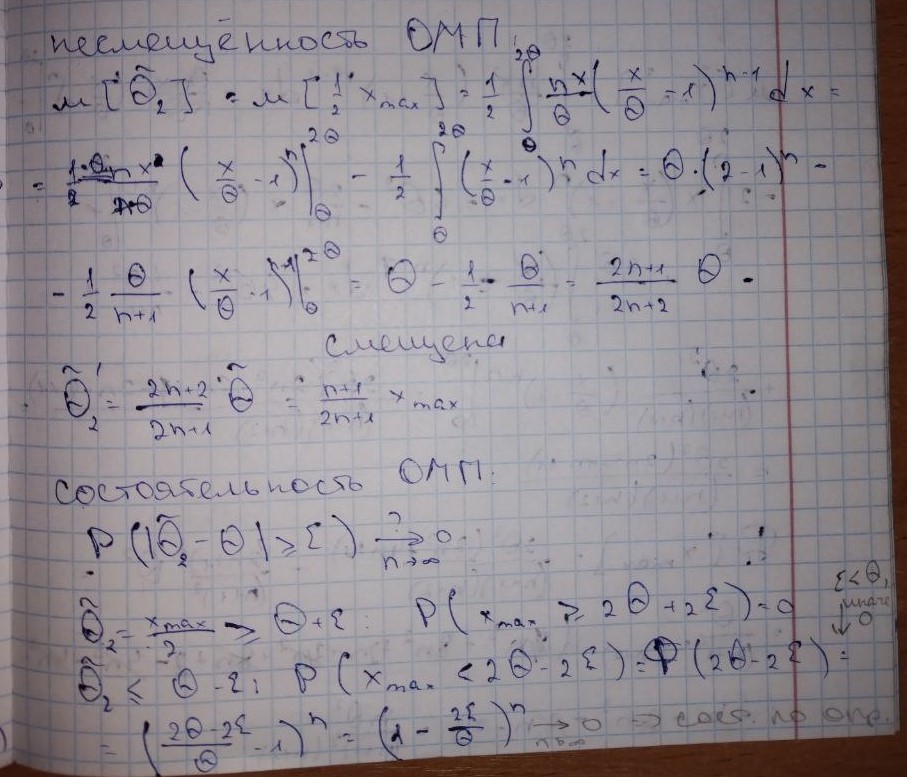 несмещённость ОМП:
M[Θ̃₂] = M[1/2 x_max] = 1/2 ∫_Θ^{2Θ} n x/Θ (x/Θ - 1)^{n-1} dx =
= (x/Θ - 1)^n |_Θ^{2Θ} - 1/2 ∫_Θ^{2Θ} (x/Θ - 1)^n dx = Θ · (2 - 1)^n -
- 1/2 Θ/(n+1) (x/Θ - 1) |_Θ^{2Θ} = Θ - 1/2 · Θ/(n+1) = (2n+1)/(2n+2) Θ
смещена
Θ̃₂' = (2n+2)/(2n+1) Θ̃ = (n+1)/(2n+1) x_max
состоятельность ОМП:
P(|Θ̃₂ - Θ| ≥ ε) →^?_{n→∞} 0
ε < Θ, иначе 0
Θ̃₂ = x_max/2 ≥ Θ + ε: P(x_max ≥ 2Θ + 2ε) = 0
Θ̃₂ ≤ Θ - ε: P(x_max < 2Θ - 2ε) = Φ(2Θ - 2ε) =
= ((2Θ - 2ε)/Θ - 1)^n = (1 - 2ε/Θ)^n →_{n→∞} 0 ⇒ сост. по опр.